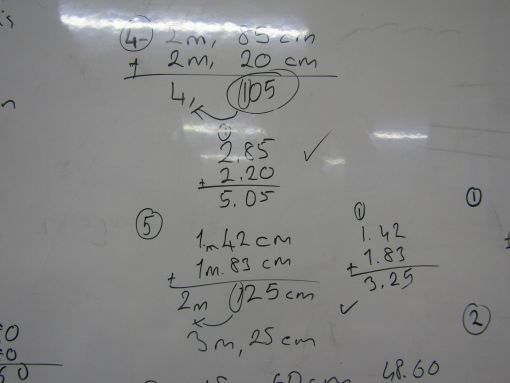 4- 2m, 85 cm
+ 2m, 20 cm
4, 105
1
2.85
+ 2.20
5.05
5
1m 42 cm
+ 1m. 83 cm
2m 125 cm
3m, 25 cm
1
1.42
+ 1.83
3.25
1
2
48.60